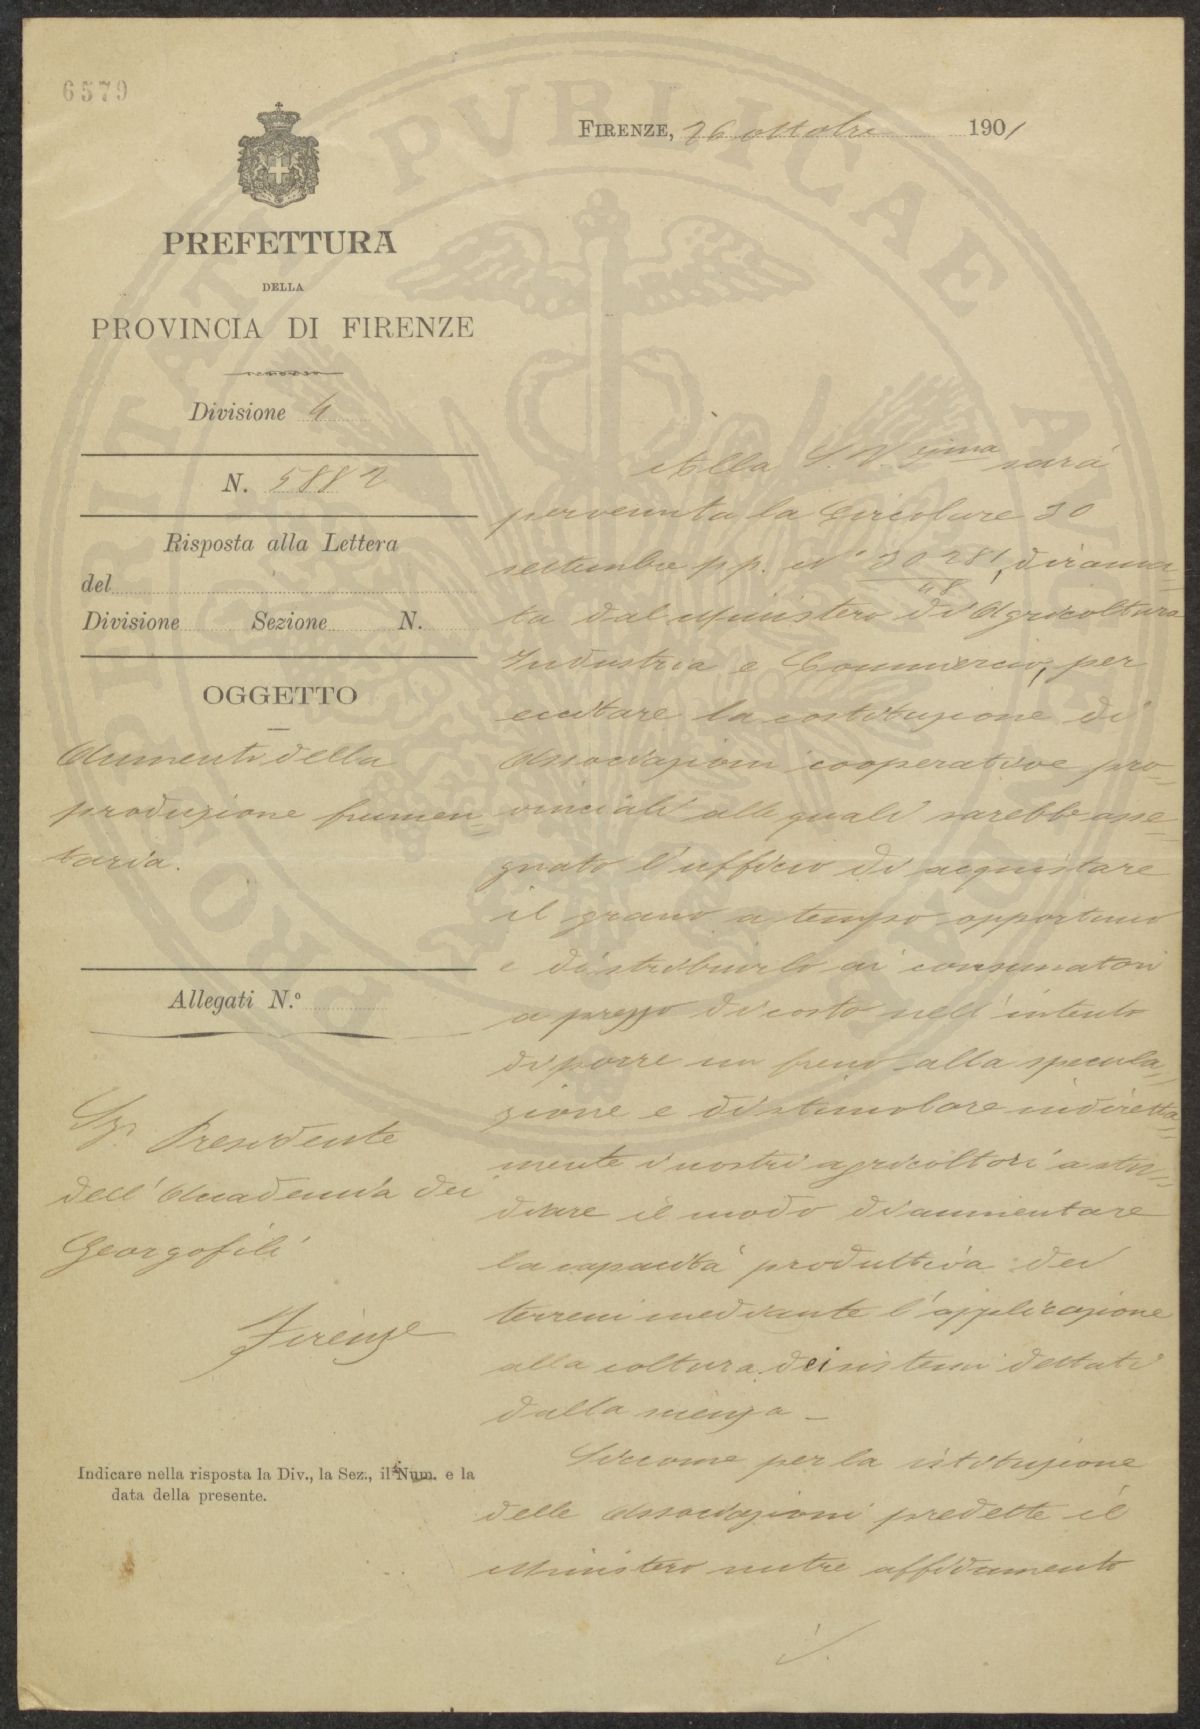 6579
FIRENZE, 26 ottobre 1901
PREFETTURA
DELLA
PROVINCIA DI FIRENZE
Divisione 4
N. 5882
Risposta alla Lettera
del
Divisione Sezione N.
OGGETTO
Aumenti della
produzione frumen-
taria.
Allegati N.º
Sig. Presidente
dell'Accademia dei
Georgofili
Firenze
Indicare nella risposta la Div., la Sez., il Num. e la
data della presente.
Alla S. V. Illma sarà
pervenuta la Circolare 30
settembre p.p. N° 30281/48, dirama-
ta dal Ministero di Agricoltura
Industria e Commercio, per
eccitare la costituzione di
Associazioni cooperative pro-
vinciali alle quali sarebbe asse-
gnato l'ufficio di acquistare
il grano a tempo opportuno
e distribuirlo ai consumatori
a prezzo di costo nell'intento
di porre un freno alla specula-
zione e di stimolare indiretta-
mente i nostri agricoltori a stu-
diare il modo di aumentare
la capacità produttiva dei
terreni mediante l'applicazione
alla coltura dei sistemi dettati
dalla scienza –
Siccome per la istituzione
delle Associazioni predette il
Ministero nutre affidamento
PROSPERITATI PVBLICAE AVGENDAE